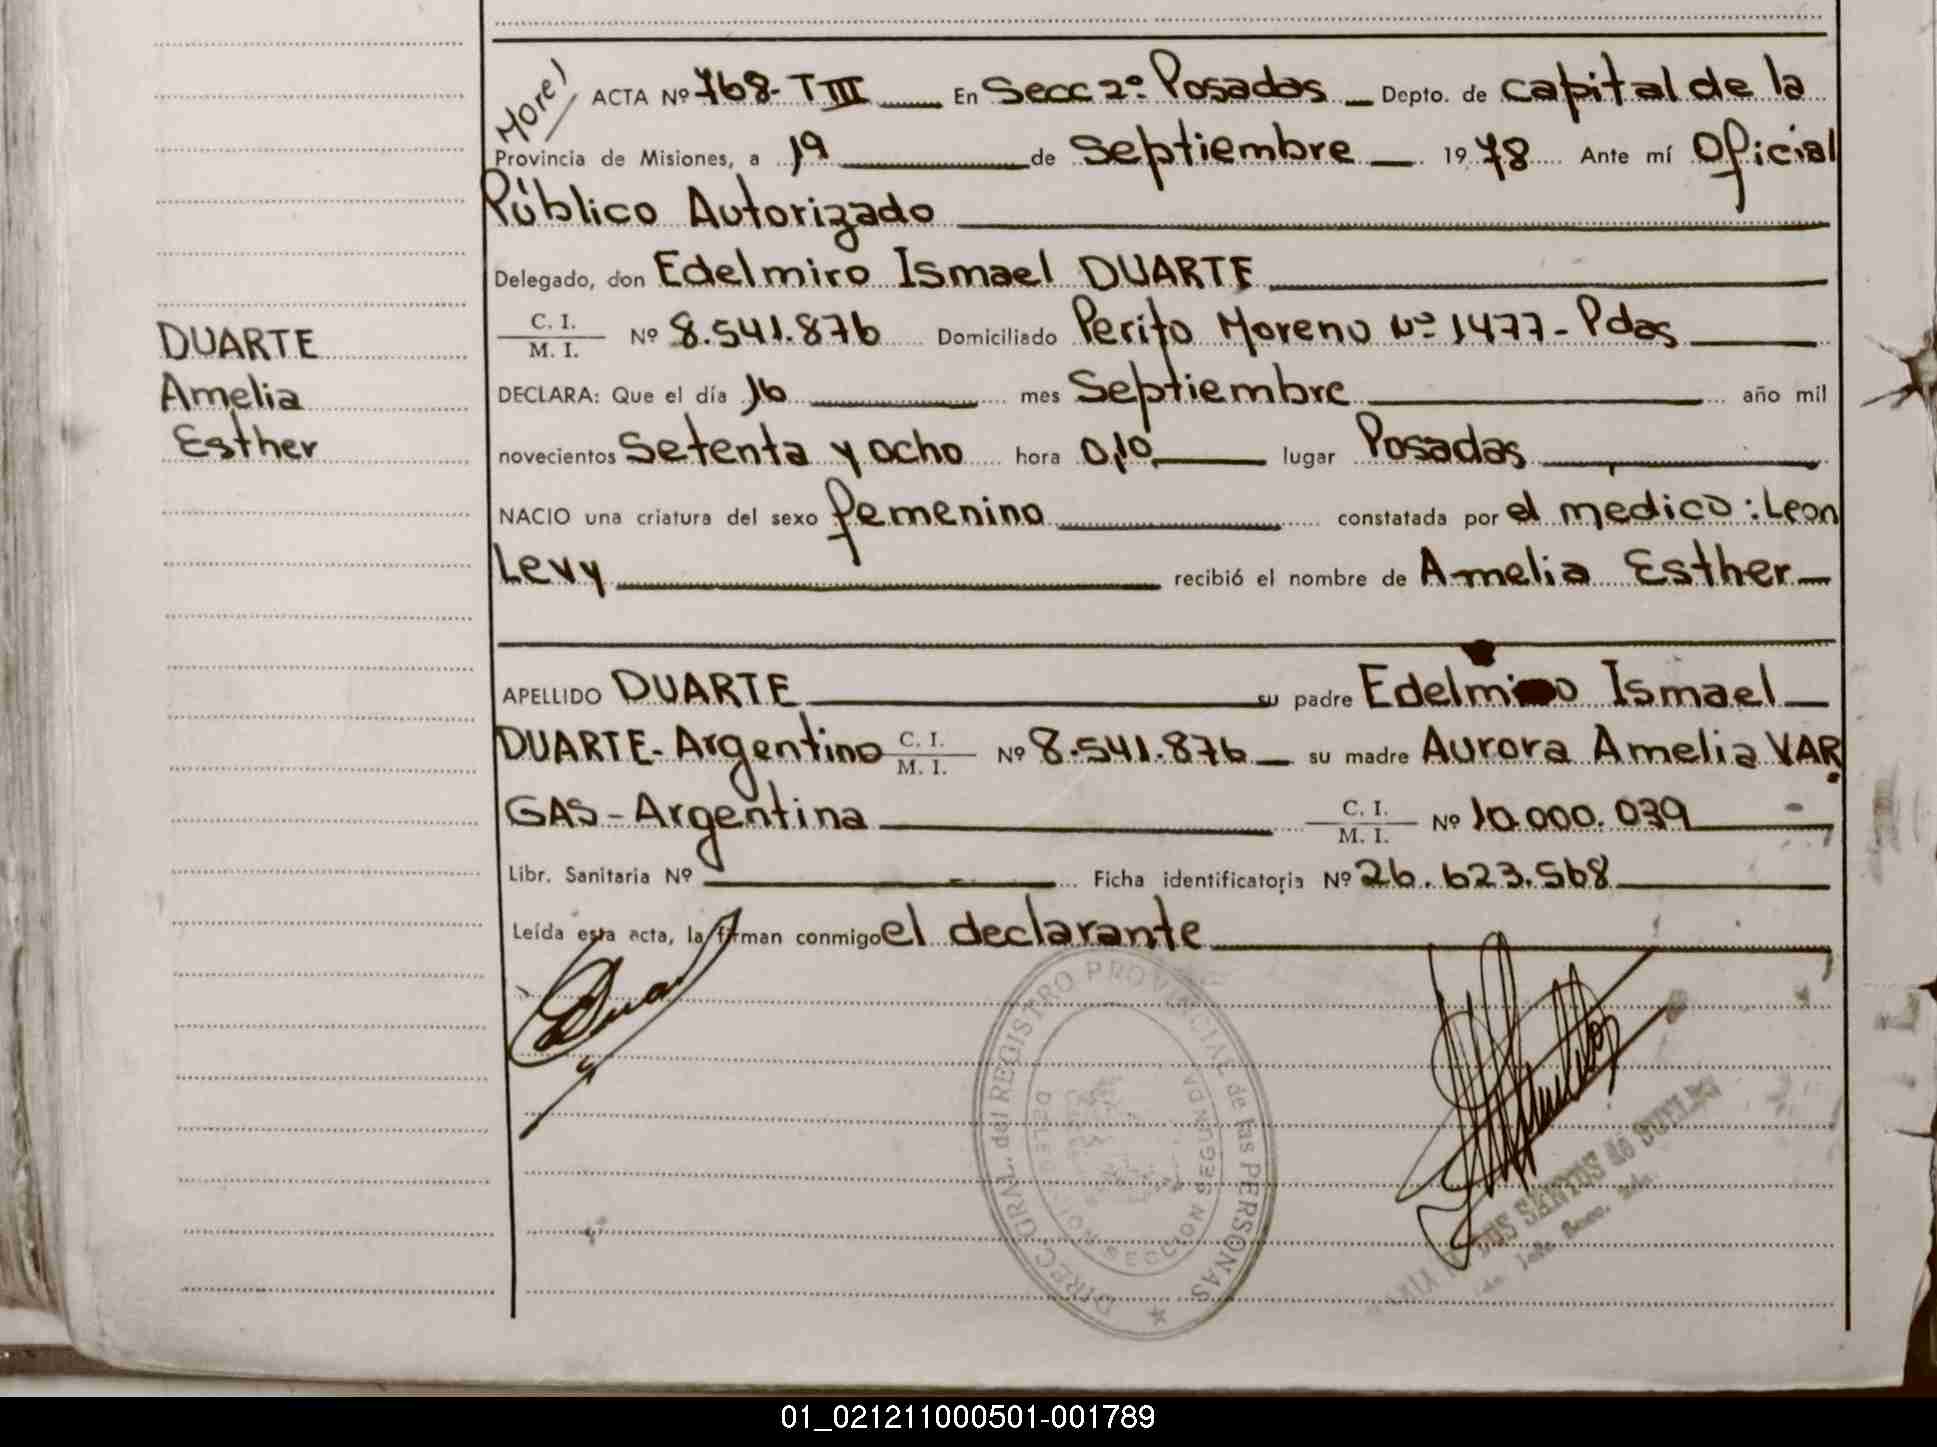 More/
ACTA Nº 768-TIII En Secc 2º Posadas Depto. de Capital de la
Provincia de Misiones, a 19 de Septiembre 1978 Ante mí Oficial
Público Autorizado
Delegado, don Edelmiro Ismael DUARTE
C. I.
M. I. Nº 8.541.876 Domiciliado Perito Moreno Nº 1477-Pdas
DUARTE
Amelia
Esther
DECLARA: Que el día 16 mes Septiembre año mil
novecientos setenta y ocho hora 0,10 lugar Posadas
NACIO una criatura del sexo femenino constatada por el medico: Leon
Levy recibió el nombre de Amelia Esther
APELLIDO DUARTE su padre Edelmiro Ismael
DUARTE-Argentino C. I.
M. I. Nº 8.541.876 su madre Aurora Amelia VAR
GAS-Argentina C. I.
M. I. Nº 10.000.039
Libr. Sanitaria Nº Ficha identificatoria Nº 26.623.568
Leída esta acta, la firman conmigo el declarante
DIREC. GRAL. del REGISTRO PROVINCIAL de las PERSONAS
DELEGACION SECCION SEGUNDA
DOS SANTOS de
01_021211000501-001789